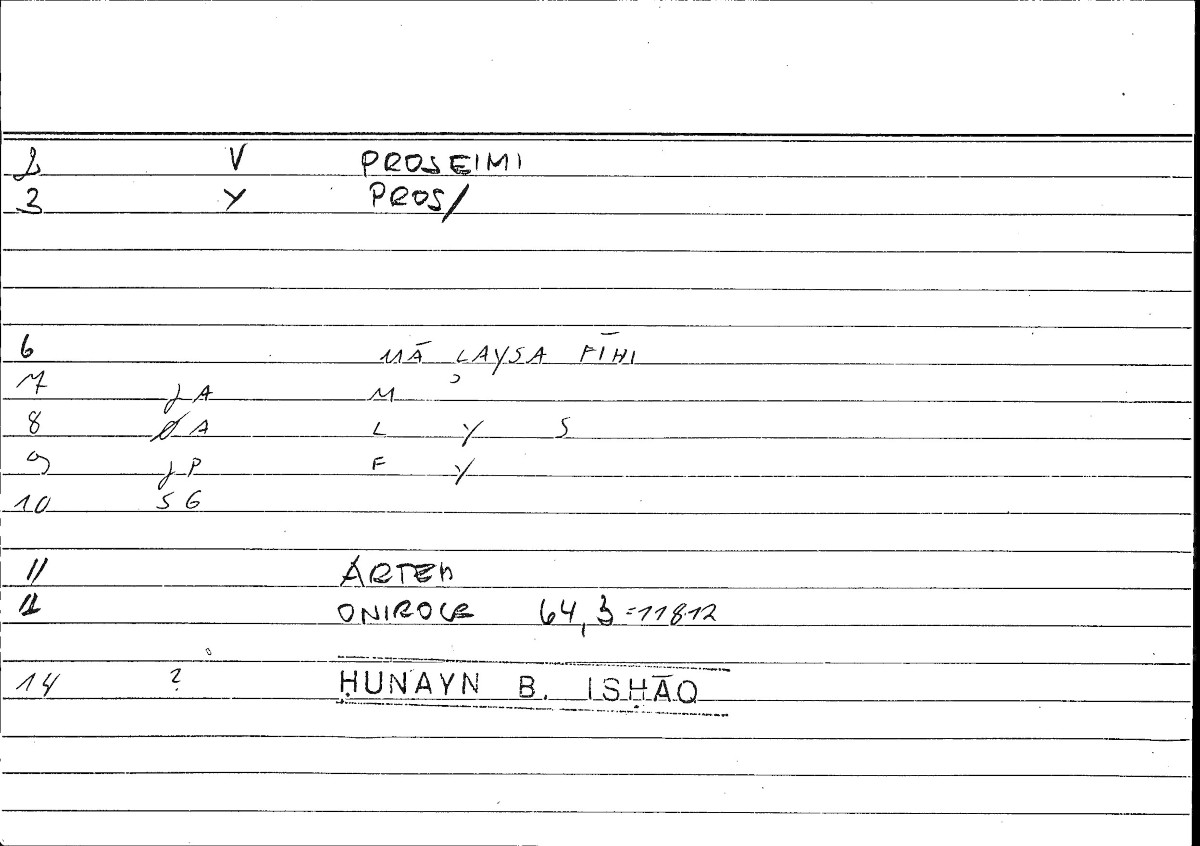 2 V PROSEIMI
3 Y PROS/
6 MĀ LAYSA FĪHI
7 JA M
8 ØA L Y S
9 JP F Y
10 SG
11 ARTEM
12 ONIROCR 64,3=11812
14 ? ḤUNAYN B. ISḤĀQ